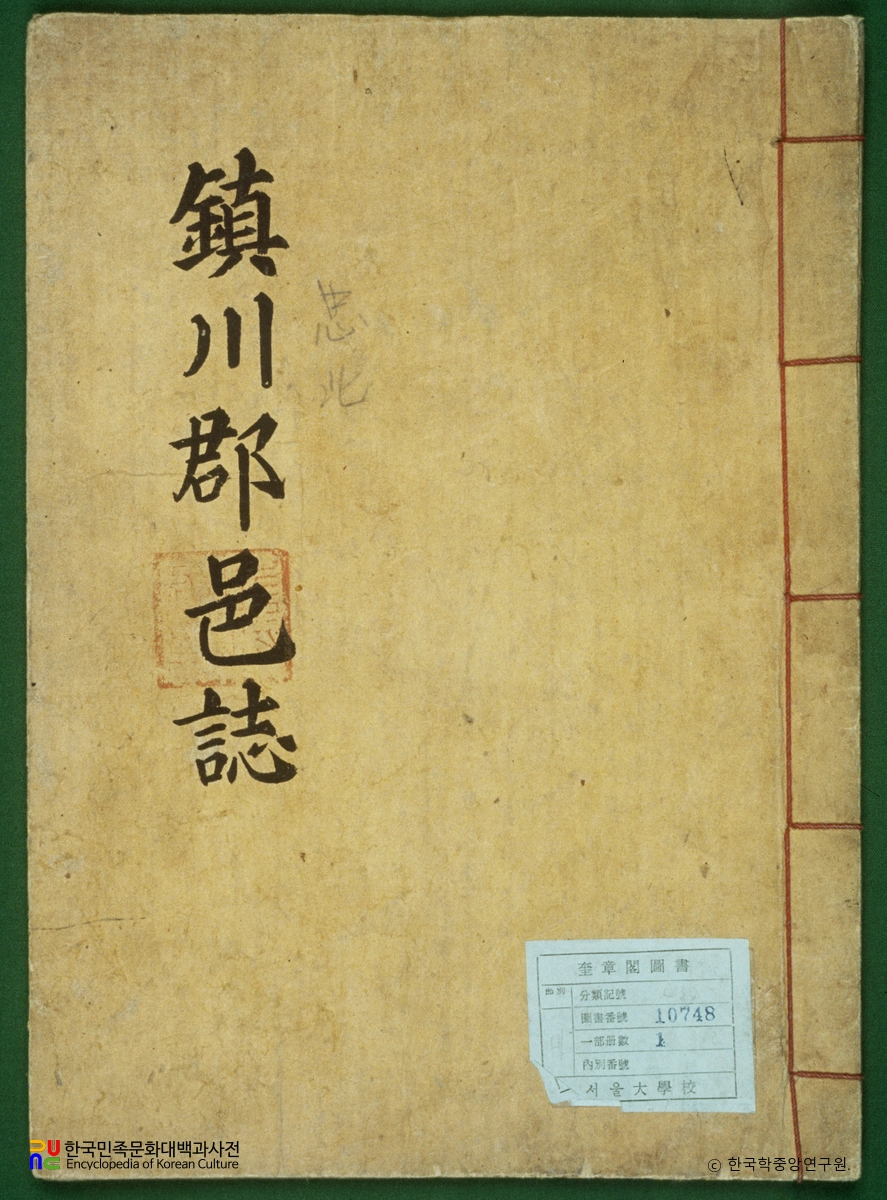 鎭川郡邑誌
忠北
奎章閣圖書
部別
分類記號
圖書番號 10748
一部册數 1
內別番號
서울大學校
한국민족문화대백과사전
Encyclopedia of Korean Culture
© 한국학중앙연구원.